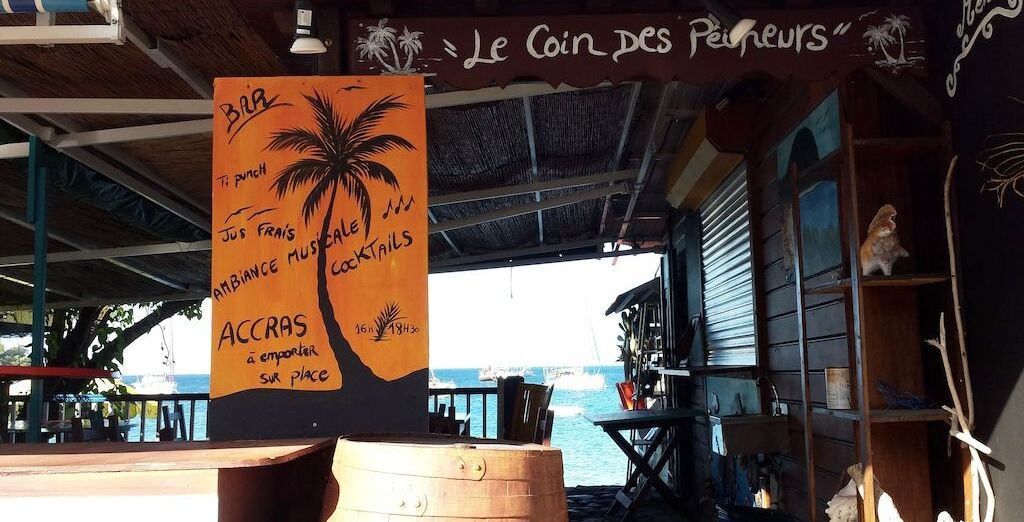 "Le Coin Des Pêcheurs"
BAR
Ti punch
Jus Frais
AMBIANCE MUSICALE
COCKTAILS
ACCRAS
16H 18H30
à emporter
sur place